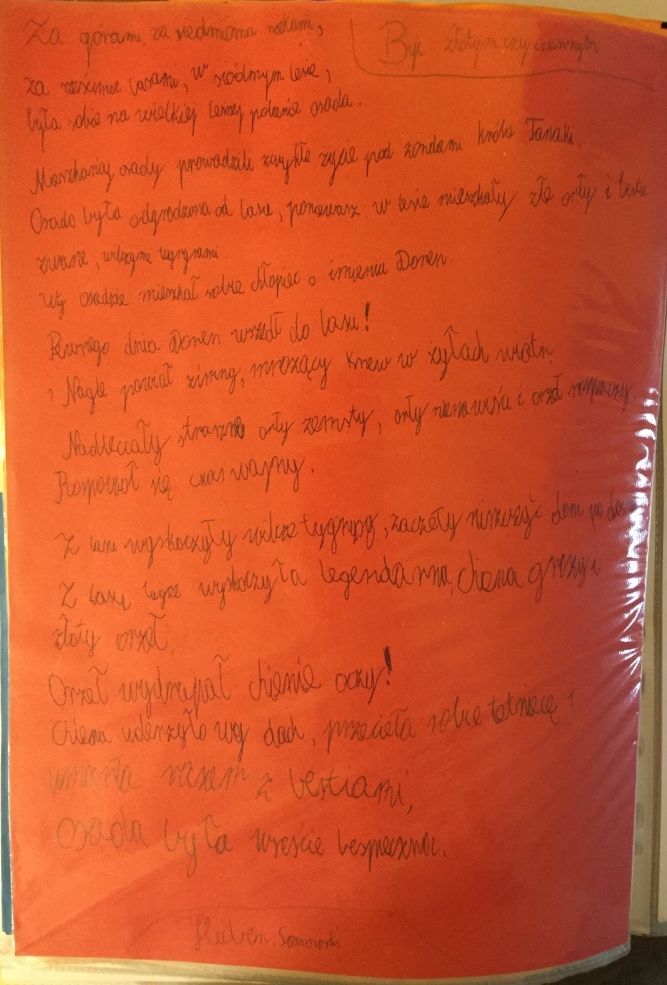 Być złotym czy czerwonym
Za górami, za siedmioma rzekami,
za sześcioma lasami, w siódmym lesie,
była sobie na wielkiej leśnej polanie osada.
Mieszkańcy osady prowadzili zwykłe życie pod żondami króla Tanaki.
Osada była odgrodzona od lasu, poniewasz w lesie mieszkały złe orły i bestie
zwane, wilczymi tygrysami.
Wy osadzie mieszkał sobie chłopiec o imieniu Doren.
Pewnego dnia Doren wszedł do lasu!
Nagle powiał zimny, mrożący krew w żyłach wiatr.
Nadleciały straszne orły zemsty, orły nienawiści i orzeł rozpaczy
Rozpoczoł się czas wojny.
Z lasu wyskoczyły wilcze tygrysy, zaczeły niszczyć dom po domu
Z lasu także wyskoczyła legendarna, chiena grozy i
złoty orzeł.
Orzeł wydrapał chienie oczy!
Chiena uderzyła wy dach, przecieła sobie tetnicę i
umarła razem z bestiami,
osada była wreście bespieczna.
Hubert